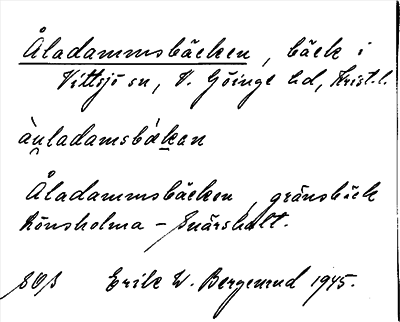 Åladammsbäcken, bäck i
Vittsjö sn, V. Göinge hd, Krist.l.
àu̯ladamsbɛ́kan
Åladammsbäcken, gränsbäck
Hönsholma - Snärshalt.
SOS Erik W. Bergemud 1945.